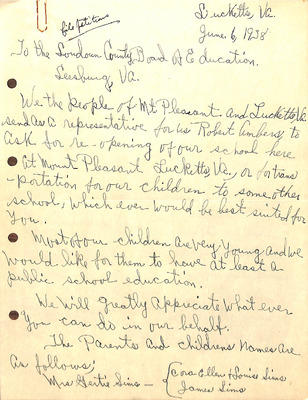 file petitions
Lucketts, Va.
June 6, 1938
To the Loudoun County Board of Education.
Leesburg, Va.
We the people of Mt Pleasant and Lucketts Va
send as a representative for us Robert Ambers, to
ask for re-opening of our school here
at Mount Pleasant Lucketts Va., or for trans
-portation for our children to some other
school, which ever would be best suited for
you.
Most of our children are very young and we
would like for them to have at least a
public school education.
We will greatly appreciate what ever
you can do in our behalf.
The Parents and childrens Names are
as follows;
Mrs Gertie Sims — { Cora Ellen & Louise Sims
James Sims